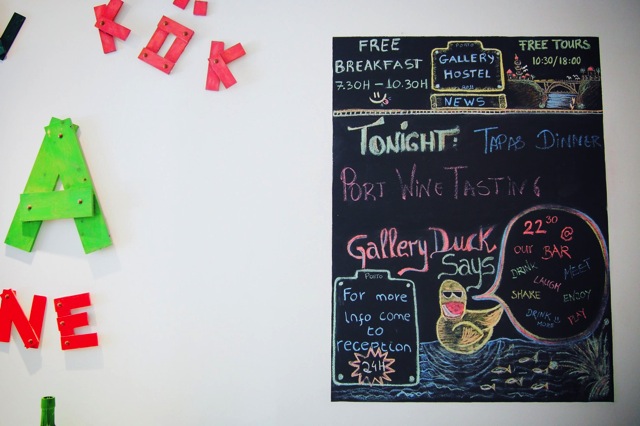 FREE
BREAKFAST
7.30H - 10.30H
Porto
GALLERY
HOSTEL
NEWS
FREE TOURS
10:30/18:00
TONIGHT: TAPAS DINNER
PORT WINE TASTING
Gallery Duck
Says
22 30 @
OUR BAR
DRINK MEET
LAUGH
SHAKE ENJOY
DRINK IS
MORE PLAY
Porto
For more
Info come
to
reception
24H
A
NE